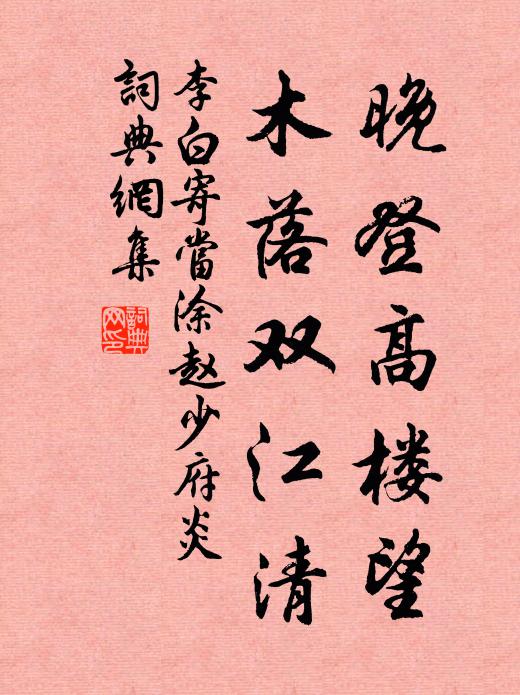 晚登高楼望
木落双江清
李白寄當涂赵少府炎
詞典網集
詞典网印